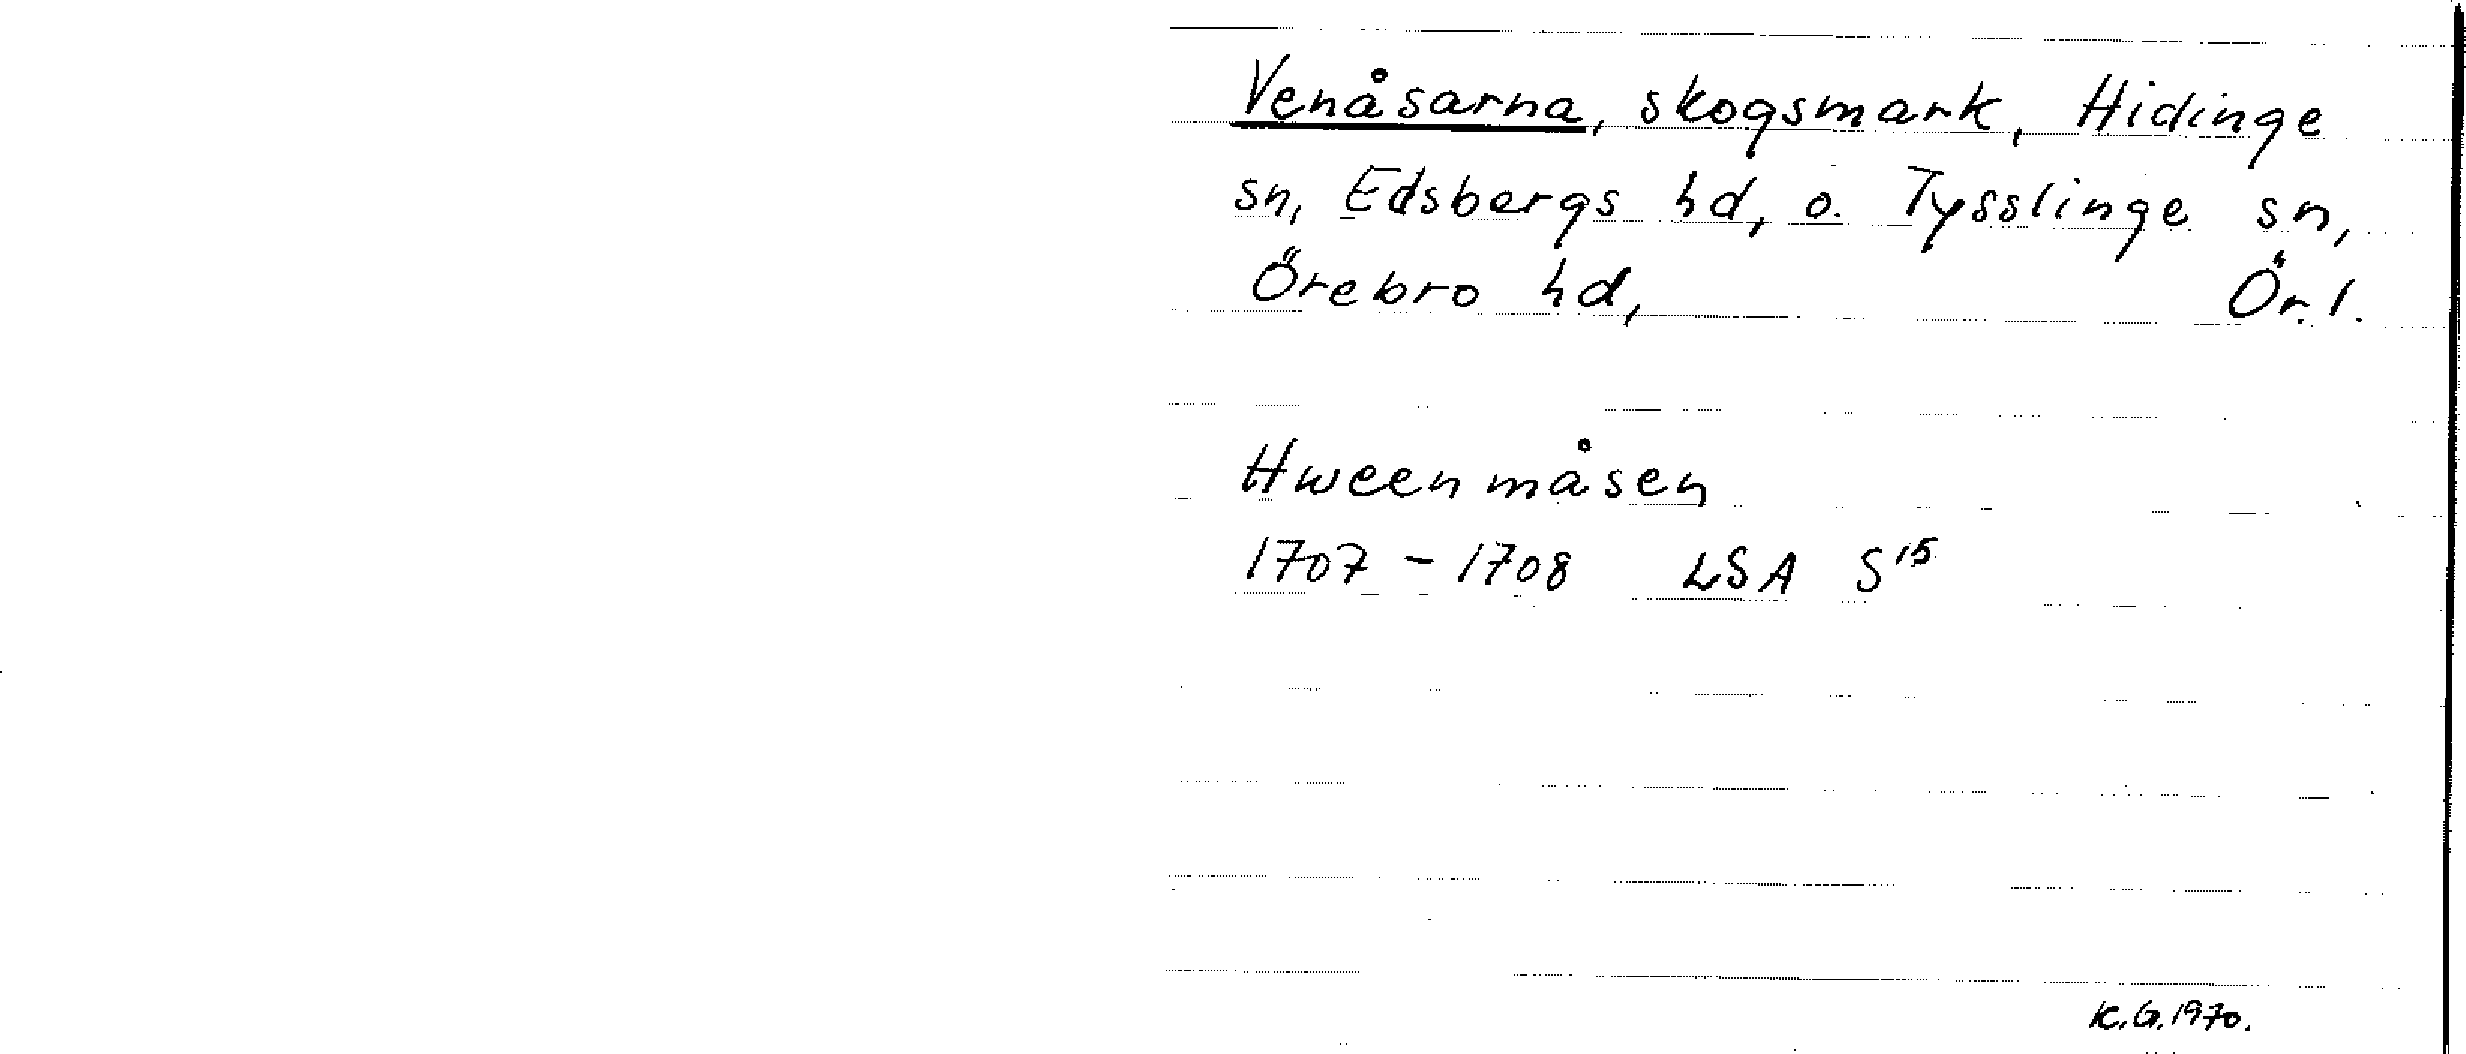 Venåsarna, skogsmark, Hidinge
sn, Edsbergs hd, o. Tysslinge sn,
Örebro hd, Ör. l.
Hweenmåsen
1707 - 1708 LSA S¹⁵
K.G.1970.